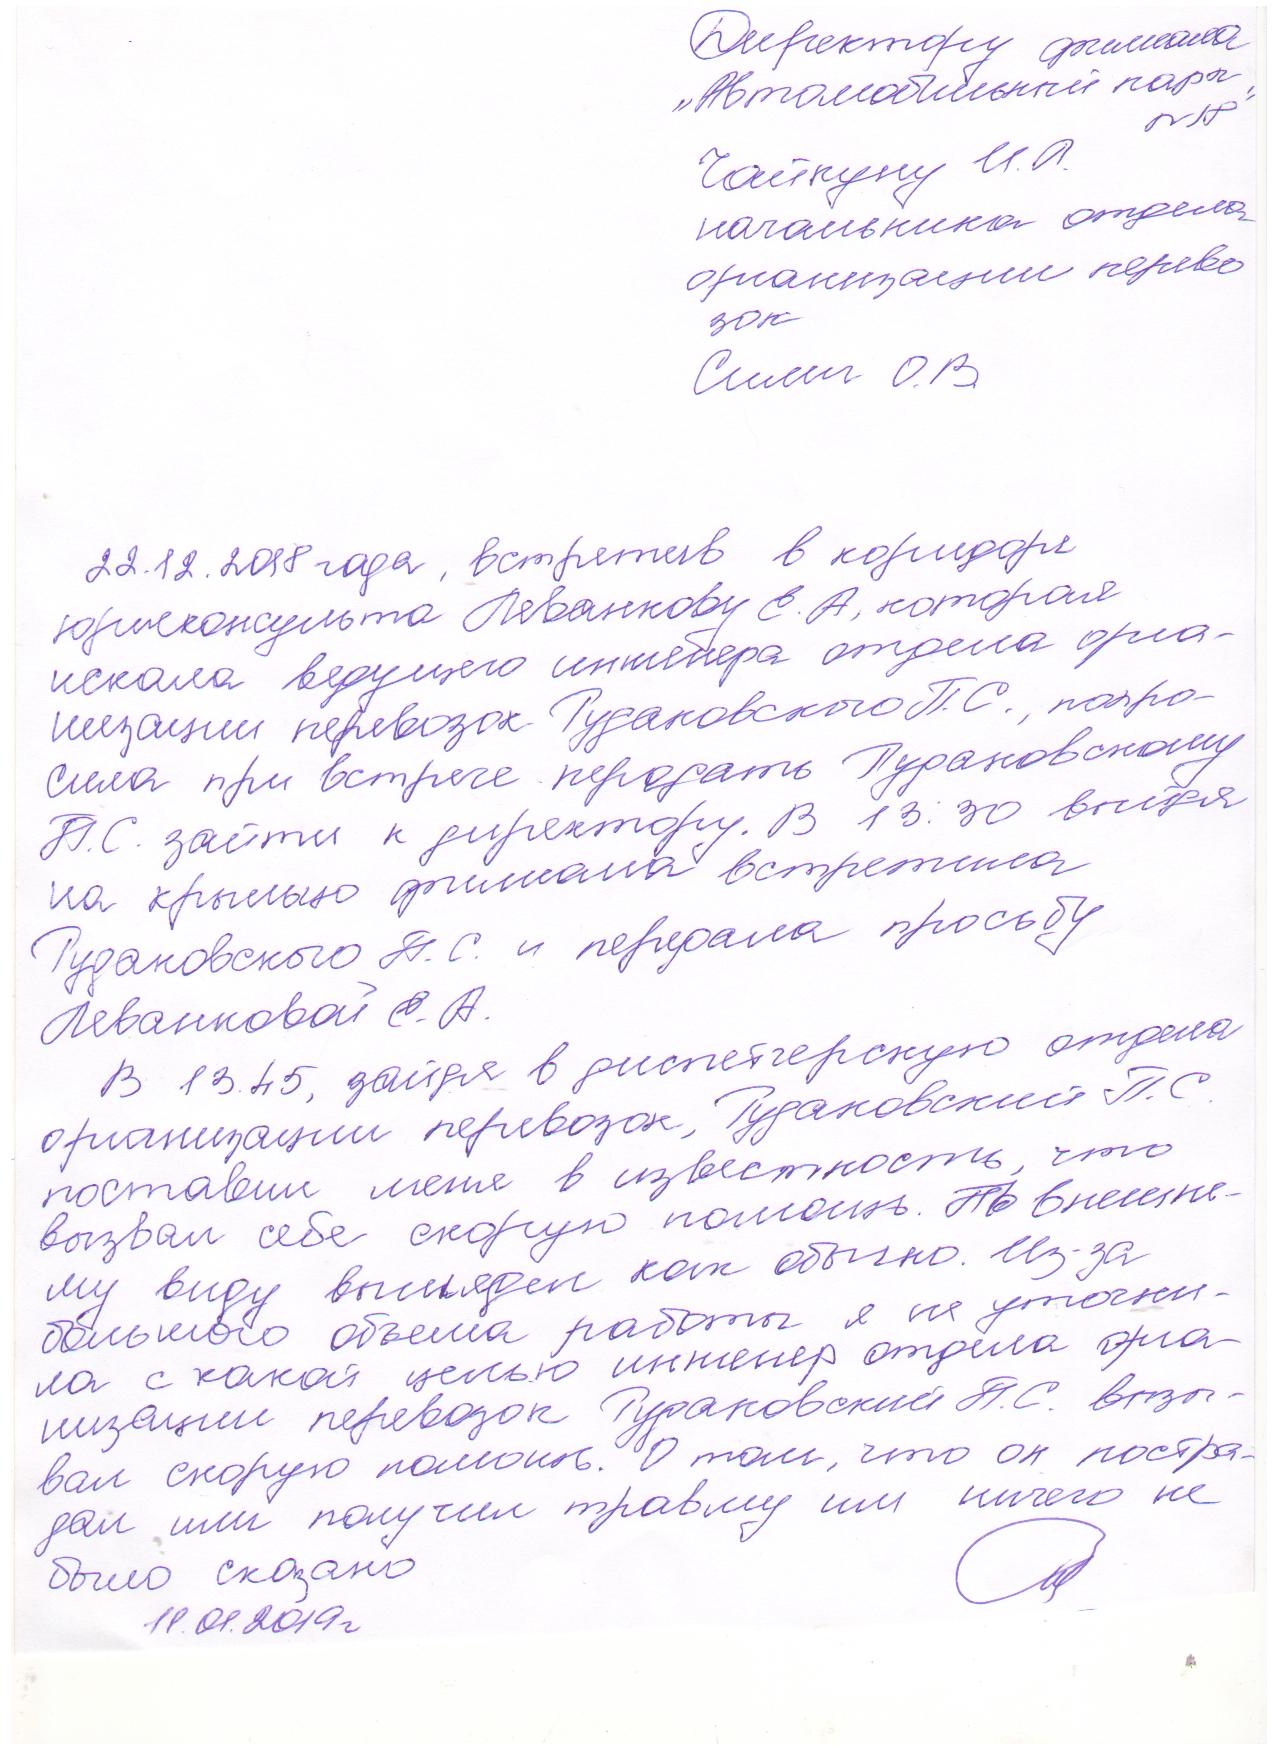 Директору филиала
„Автомобильный парк
Чайкуну И.А.
начальника отдела
организации перево
зок
О.В.
22.12.2018 года, встретив в коридоре
юрисконсульта Леванкову Е.А, которая
искала ведущего инженера отдела орга-
низации перевозок Гудановского П.С., попро-
сила при встрече передать Гудановскому
П.С. зайти к директору. В 13:30 выйдя
на крыльцо филиала встретила
Гудановского П.С. и передала просьбу
Леванковой Е.А.
В 13.45, зайдя в диспетчерскую отдела
организации перевозок, Гудановский П.С.
поставил меня в известность, что
вызвал себе скорую помощь. По внешне-
му виду выглядел как обычно. Из-за
большого объема работы я не уточни-
ла с какой целью инженер отдела орга
низации перевозок Гудановский П.С. вызы-
вал скорую помощь. О том, что он постра-
дал или получил травму им ничего не
было сказано
11.01.2019г